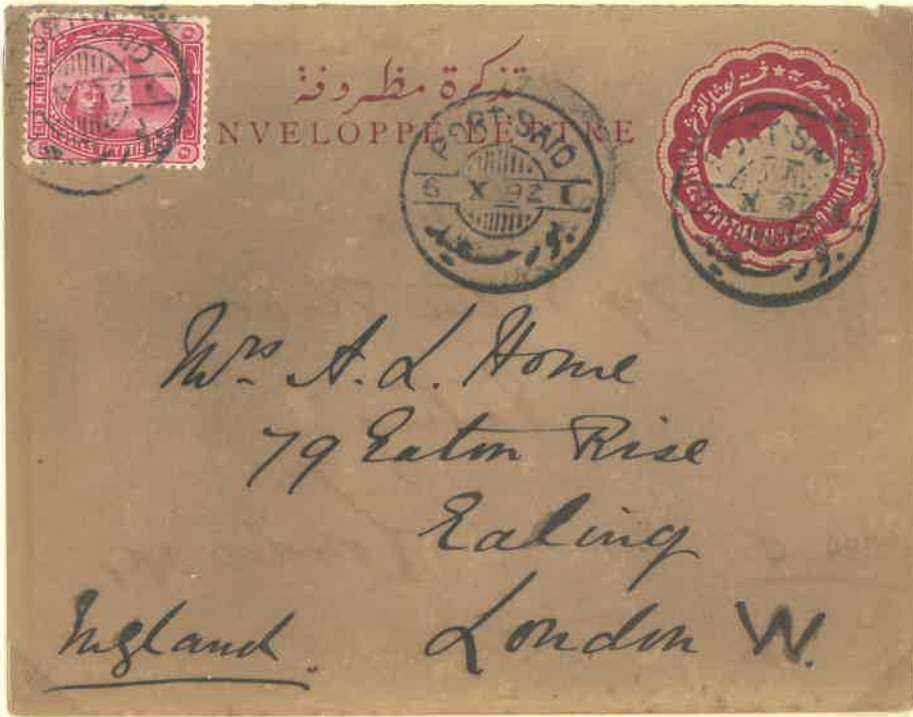 تذكرة مظروفة
ENVELOPPE-LETTRE
PORT-SAID
6 X 92 T
بورسعيد
POSTES EGYPTIENNES
Mrs A. L. Home
79 Eaton Rise
Ealing
London W.
England.